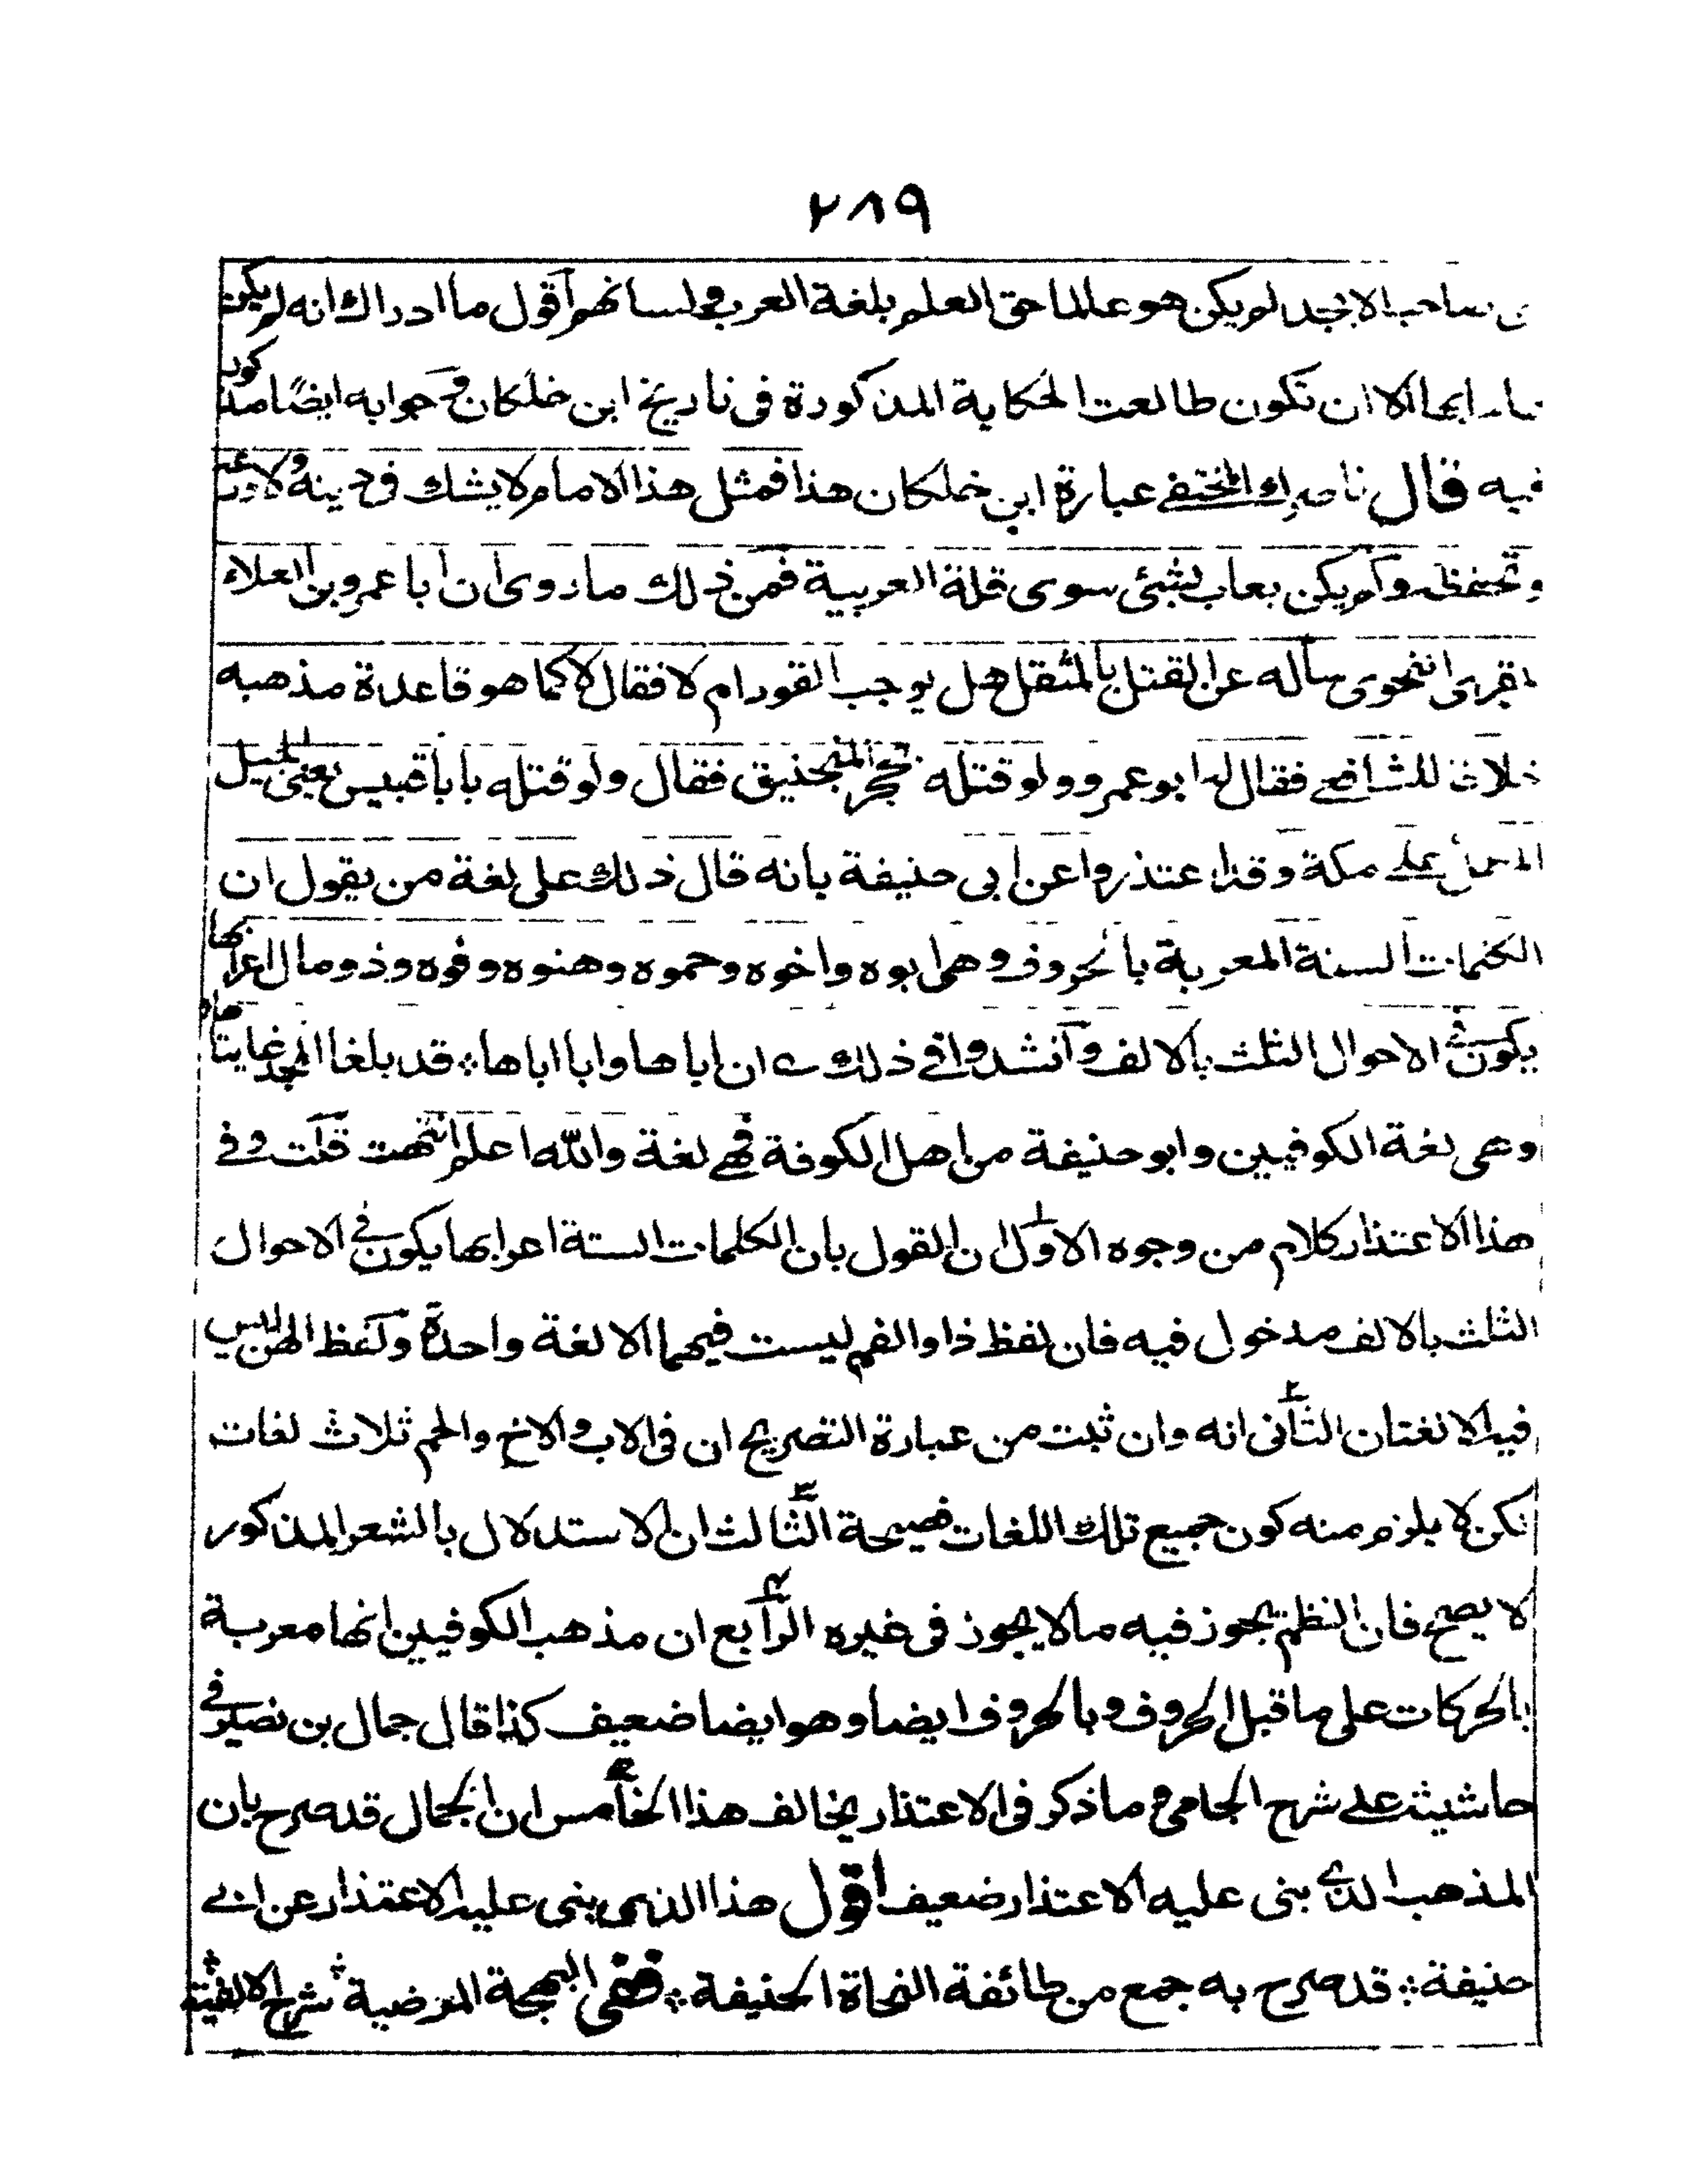 ٢٨٩
صاحب الابجد لم يكن هو عالما حق العلم بلغة العرب ولسانهم اقول ما ادراك انه لم يكن
الا ان تكون طالعت الحكاية المذكورة فى تاريخ ابن خلكان وجوابه ايضًا مذكور
فيه قال ناصرك المختفے عبارة ابن خلكان هذا فمثل هذا الامام لا يشك فى دينه ولا ورعه
وتحفظه ولم يكن يعاب بشئ سوى قلة العربية فمن ذلك ما روى ان ابا عمرو بن العلاء
المقرى النحوى سأله عن القتل بالمثقل هل يوجب القود ام لا فقال لا كما هو قاعدة مذهبه
خلافا للشافعے فقال له ابو عمرو ولو قتله بحجر المنجنيق فقال ولو قتله بابا قبيس يعنى الجبل
المطل علے مكة وقد اعتذروا عن ابى حنيفة بانه قال ذلك على لغة من يقول ان
الكلمات الستة المعربة بالحروف وهى ابوه واخوه وحموه وهنوه وفوه وذو مال اعرابها
يكون فى الاحوال الثلث بالالف وانشدوا فے ذلك ؎ ان اباها وابا اباها ۞ قد بلغا المجد غايتاها
وهى لغة الكوفيين وابو حنيفة من اهل الكوفة فهے لغة والله اعلم انتهت قلت وفے
هذا الاعتذار كلام من وجوه الاول ان القول بان الكلمات الستة اعرابها يكون فے الاحوال
الثلث بالالف مدخول فيه فان لفظ ذا والفم ليست فيهما الا لغة واحدة ولفظ الهن ليس
فيه الا لغتان الثانى انه وان ثبت من عبارة التصريح ان فى الاب والاخ والحم ثلاث لغات
لكن لا يلزم منه كون جميع تلك اللغات فصيحة الثالث ان الاستدلال بالشعر المذكور
لا يصح فان النظم يجوز فيه ما لا يجوز فى غيره الرابع ان مذهب الكوفيين انها معربة
بالحركات على ما قبل الحروف وبالحروف ايضا وهو ايضا ضعيف كذا قال جمال بن نصير فے
حاشيته علے شرح الجامى وما ذكر فى الاعتذار يخالف هذا الخامس ان الجمال قد صرح بان
المذهب الذے بنى عليه الاعتذار ضعيف اقول هذا الذى بنى عليه الاعتذار عن ابے
حنيفة ۞ قد صرح به جمع من طائفة النحاة الحنيفة ۞ ففى البهجة المرضية شرح الالفية